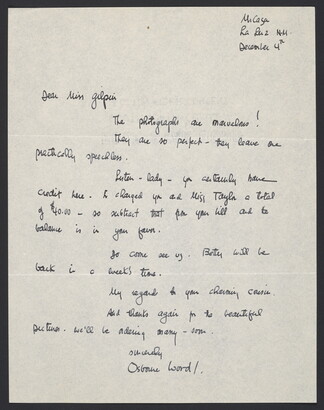 Mi Casa
La Luz N.M.
December 4th
Dear Miss Gilpin
The photographs are marvelous!
They are so perfect - they leave one
practically speechless.
Listen - lady - you certainly have
credit here. I charged you and Miss Taylor a total
of $40.00 - so subtract that from your bill and the
balance is in your favor.
Do come see us. Betty will be
back in a week's time.
My regards to your charming cousin.
And thanks again for the beautiful
pictures. We'll be ordering many - soon.
Sincerely
Osborne Wood/.